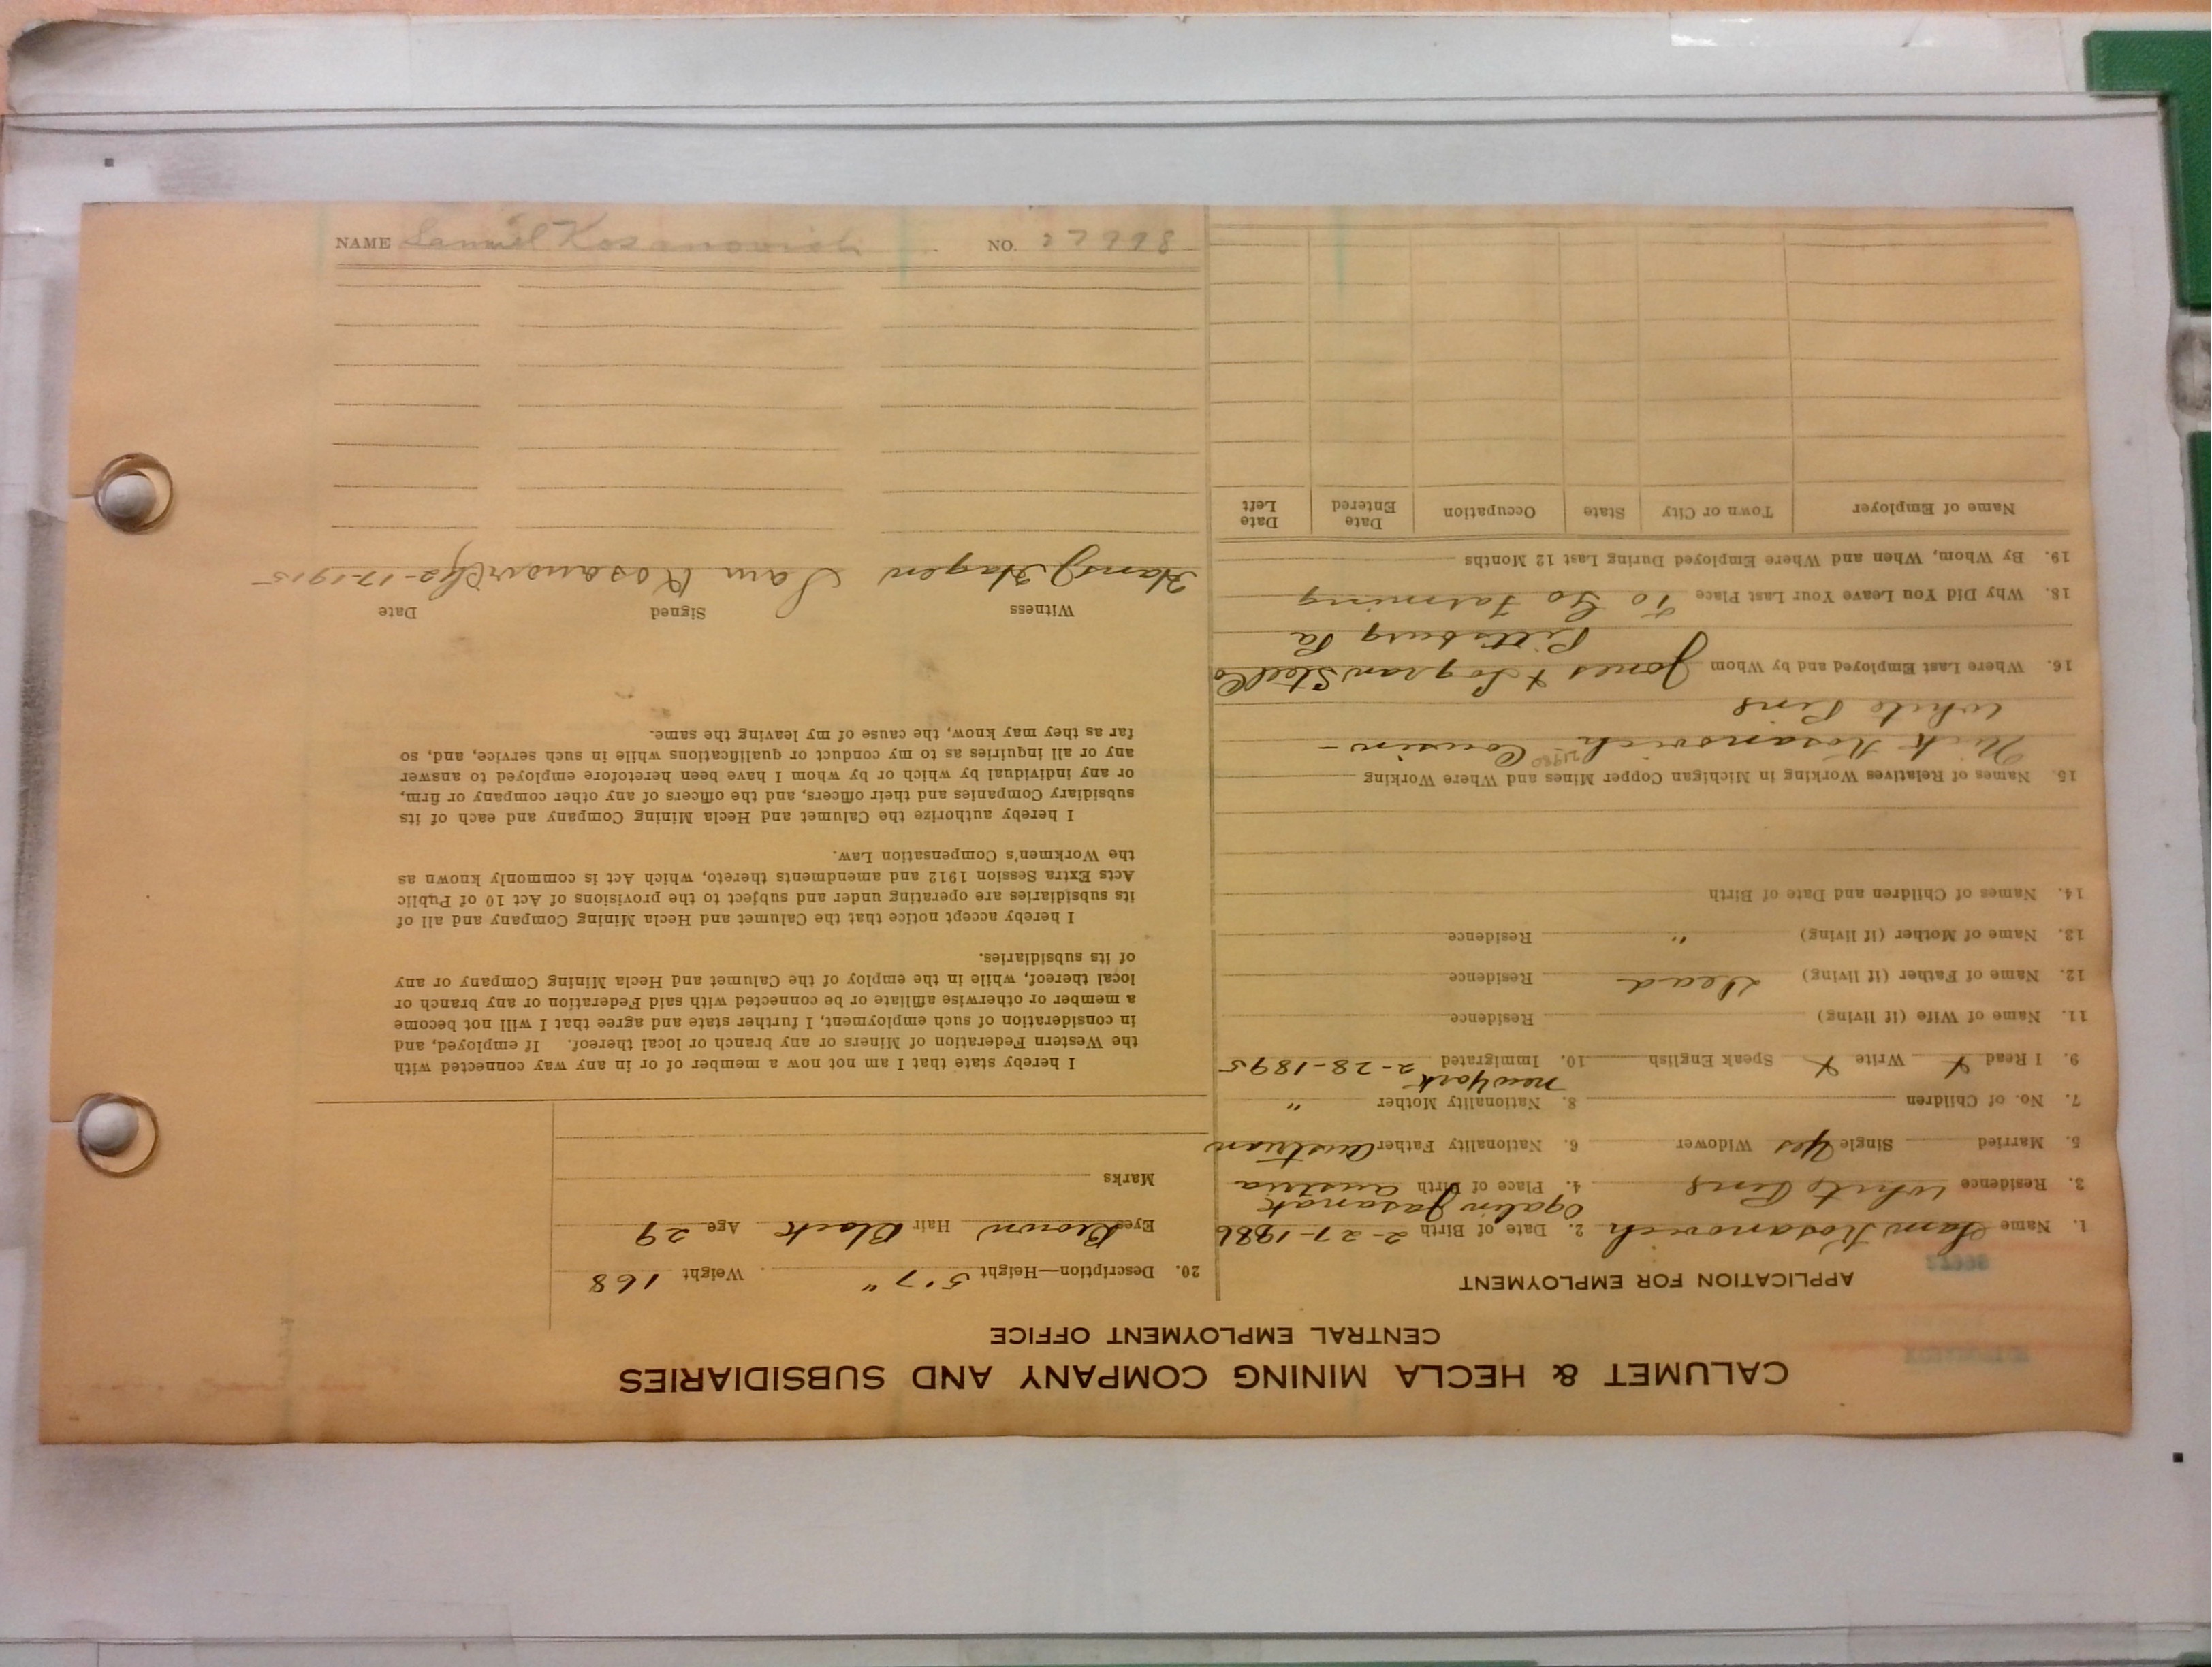 CALUMET & HECLA MINING COMPANY AND SUBSIDIARIES
CENTRAL EMPLOYMENT OFFICE
APPLICATION FOR EMPLOYMENT
1. Name Sam Kosanovich 2. Date of Birth 2-27-1886
Ogalin Jasanak
3. Residence White Pine 4. Place of Birth Austria
5. Married Single Yes Widower 6. Nationality Father Austrian
7. No. of Children 8. Nationality Mother "
New York
9. I Read X Write X Speak English 10. Immigrated 2-28-1895
11. Name of Wife (if living) Residence
12. Name of Father (if living) Dead Residence
13. Name of Mother (if living) " Residence
14. Names of Children and Date of Birth
15. Names of Relatives Working in Michigan Copper Mines and Where Working
Nick Kosanovich Cousin -
White Pine
16. Where Last Employed and by Whom Jones & Logran Steel Co
Pittsburg Pa
18. Why Did You Leave Your Last Place To Go Farming
19. By Whom, When and Where Employed During Last 12 Months
Name of Employer Town or City State Occupation Date Entered Date Left
20. Description—Height 5'7" Weight 168
Eyes Brown Hair Black Age 29
Marks
I hereby state that I am not now a member of or in any way connected with
the Western Federation of Miners or any branch or local thereof. If employed, and
in consideration of such employment, I further state and agree that I will not become
a member or otherwise affiliate or be connected with said Federation or any branch or
local thereof, while in the employ of the Calumet and Hecla Mining Company or any
of its subsidiaries.
I hereby accept notice that the Calumet and Hecla Mining Company and all of
its subsidiaries are operating under and subject to the provisions of Act 10 of Public
Acts Extra Session 1912 and amendments thereto, which Act is commonly known as
the Workmen's Compensation Law.
I hereby authorize the Calumet and Hecla Mining Company and each of its
subsidiary Companies and their officers, and the officers of any other company or firm,
or any individual by which or by whom I have been heretofore employed to answer
any or all inquiries as to my conduct or qualifications while in such service, and, so
far as they may know, the cause of my leaving the same.
Witness Signed Date
Hans J. Hagen Sam Kosanovich 12-17-1915
NAME Samuel Kosanovich NO. 27998